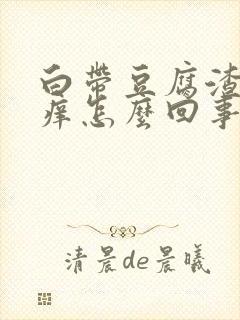 白帶豆腐渣
痒怎麼回事
清晨de晨曦